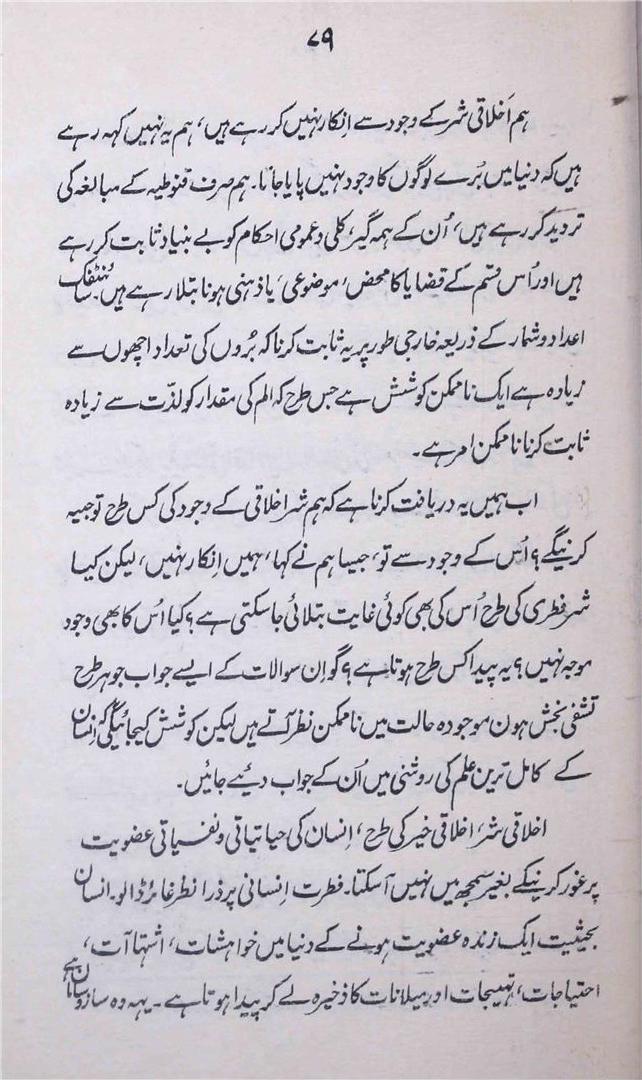 ۷۹
ہم اَخلاقی شر کے وجود سے اِنکار نہیں کر رہے ہیں، ہم یہ نہیں کہہ رہے
ہیں کہ دنیا میں بُرے لوگوں کا وجود نہیں پایا جاتا۔ ہم صرف قنوطیہ کے مبالغہ کی
تردید کر رہے ہیں، اُن کے ہمہ گیر، کلی و عمومی احکام کو بے بنیاد ثابت کر رہے
ہیں اور اُس قسم کے قضایا کا محض، موضوعی، یا ذہنی ہونا بتلا رہے ہیں۔ سائنٹفک
اعداد و شمار کے ذریعہ خارجی طور پر یہ ثابت کرنا کہ بُروں کی تعداد اچھوں سے
زیادہ ہے ایک ناممکن کوشش ہے جس طرح کہ الم کی مقدار کو لذّت سے زیادہ
ثابت کرنا ناممکن امر ہے۔
اب ہمیں یہ دریافت کرنا ہے کہ ہم شر اخلاقی کے وجود کی کس طرح توجیہ
کرینگے؟ اُس کے وجود سے تو، جیسا ہم نے کہا، ہمیں اِنکار نہیں، لیکن کیا
شر فطری کی طرح اُس کی بھی کوئی غایت بتلائی جا سکتی ہے؟ کیا اُس کا بھی وجود
موجہ نہیں؟ یہ پیدا کس طرح ہوتا ہے؟ گو اِن سوالات کے ایسے جواب جو ہر طرح
تشفی بخش ہوں موجودہ حالت میں ناممکن نظر آتے ہیں لیکن کوشش کیجائیگی کہ اِنسان
کے کامل ترین علم کی روشنی میں اُن کے جواب دئیے جائیں۔
اخلاقی شر، اخلاقی خیر کی طرح، اِنسان کی حیاتیاتی و نفسیاتی عضویت
پر غور کرنیکے بغیر سمجھ میں نہیں آ سکتا۔ فطرت اِنسانی پر ذرا نظر غائر ڈالو۔ انسان
بحیثیت ایک زندہ عضویت ہونے کے دنیا میں خواہشات، اشتہاآت،
احتیاجات، تہیجات اور میلانات کا ذخیرہ لے کر پیدا ہوتا ہے۔ یہہ وہ ساز و سامان ہے